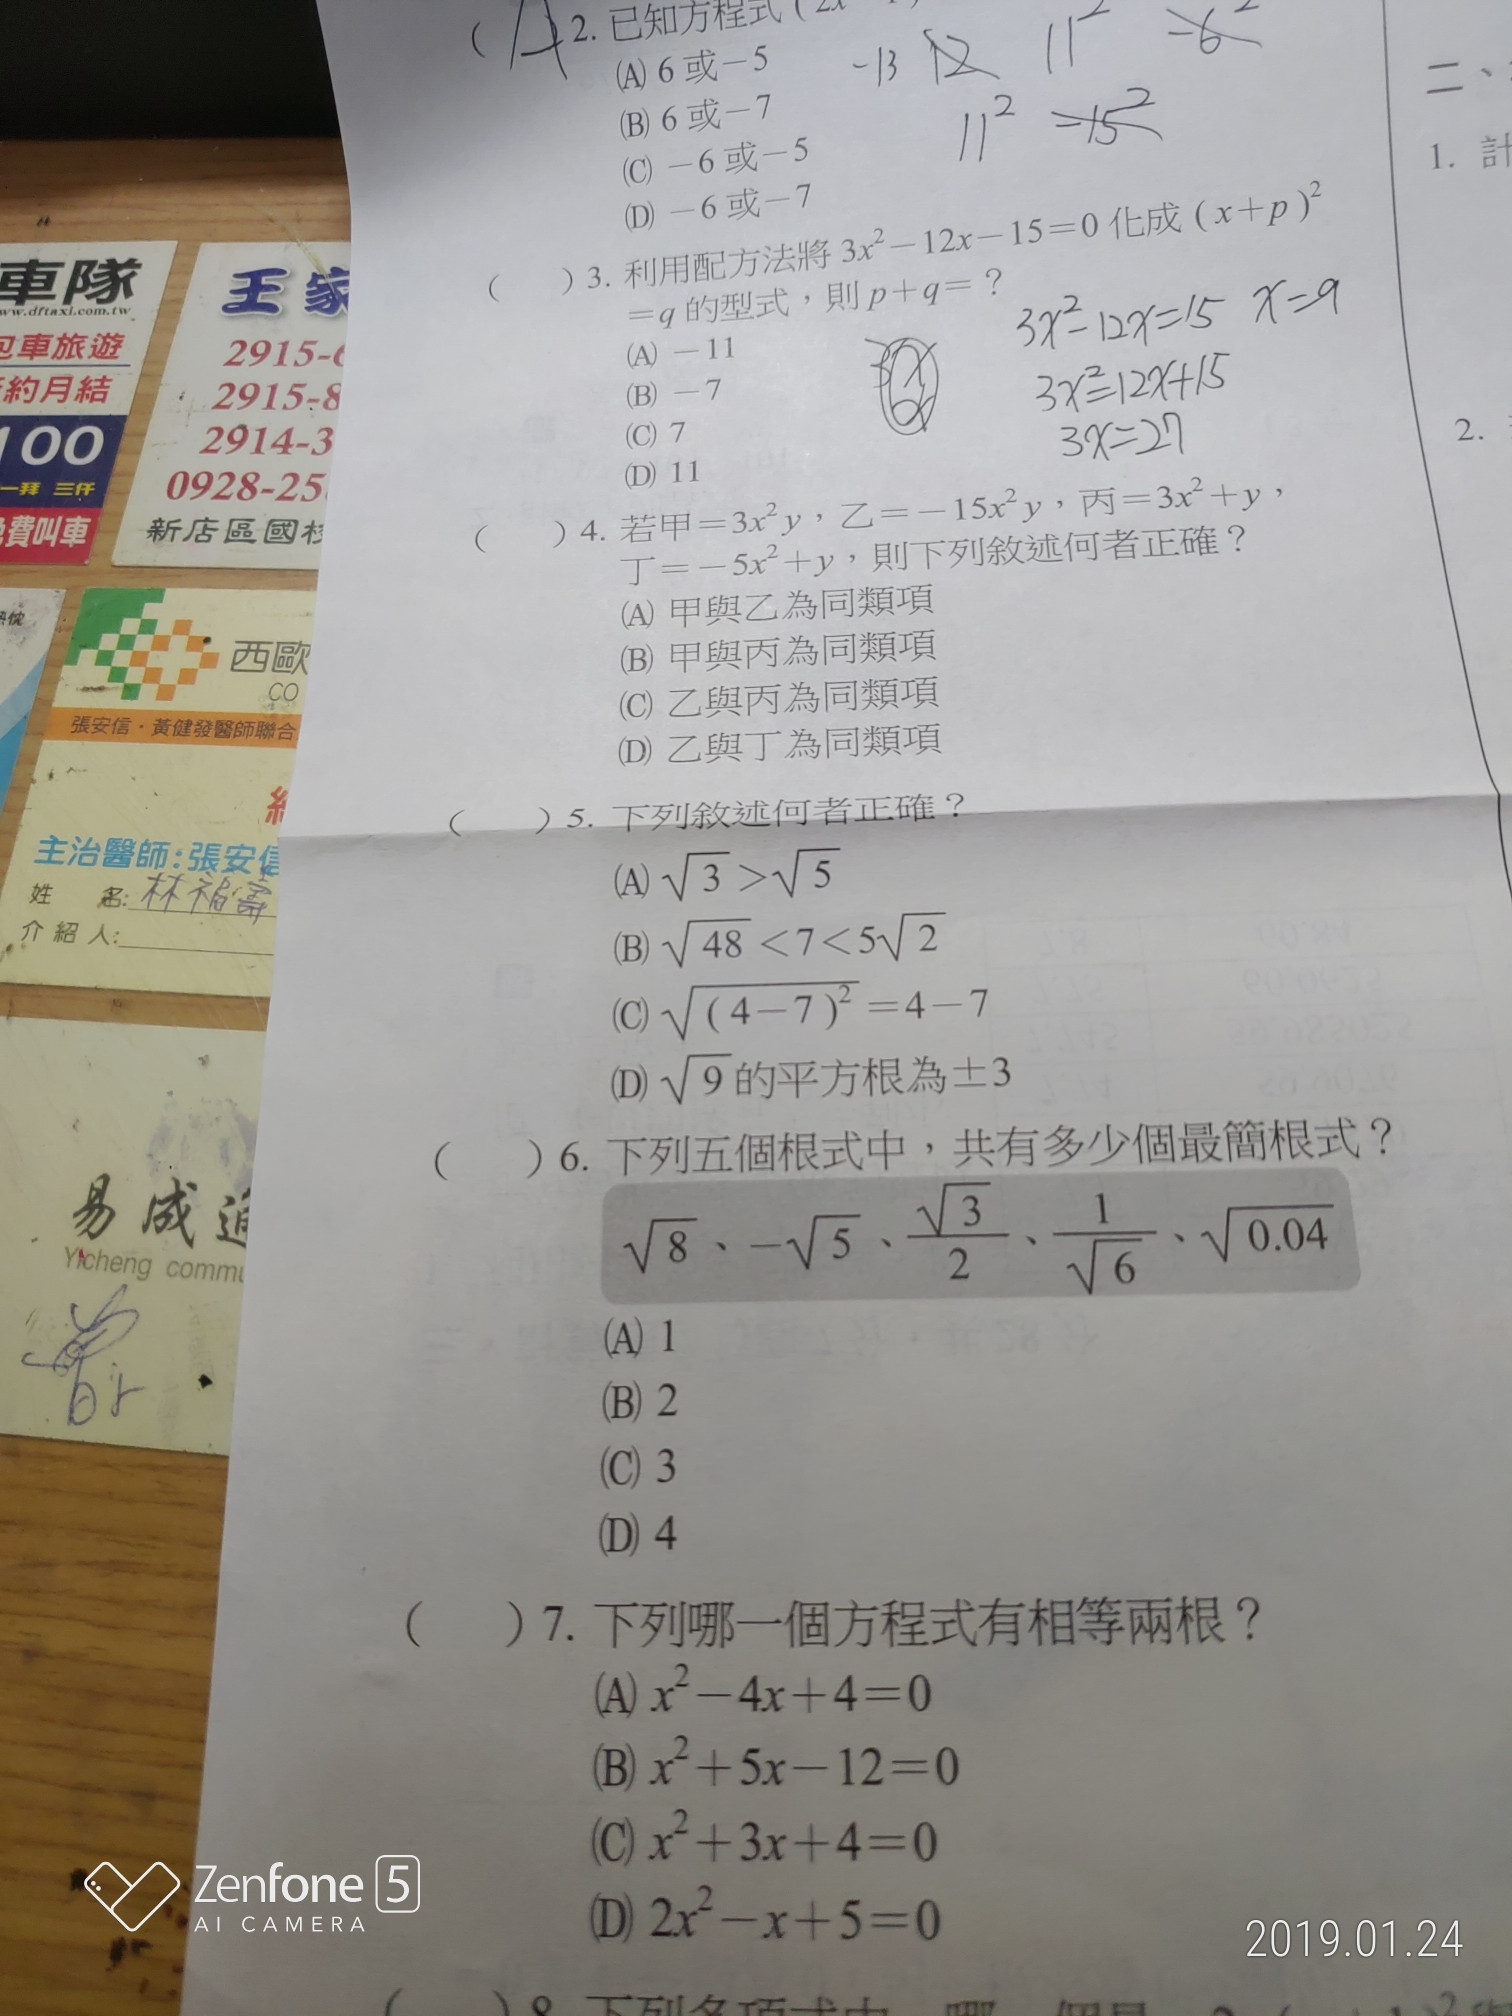 ( A )2. 已知方程式(2x
(A) 6或-5
(B) 6或-7
(C) -6或-5
(D) -6或-7
-13 12 11² -6²
11² -15²
( )3. 利用配方法將3x²-12x-15=0化成(x+p)²
=q的型式，則p+q=？
(A) -11
(B) -7
(C) 7
(D) 11
3x²-12x=15 x=9
3x²=12x+15
3x=27
( )4. 若甲=3x²y，乙=-15x²y，丙=3x²+y，
丁=-5x²+y，則下列敘述何者正確？
(A) 甲與乙為同類項
(B) 甲與丙為同類項
(C) 乙與丙為同類項
(D) 乙與丁為同類項
( )5. 下列敘述何者正確？
(A) √3>√5
(B) √48<7<5√2
(C) √(4-7)²=4-7
(D) √9的平方根為±3
( )6. 下列五個根式中，共有多少個最簡根式？
√8、-√5、√3/2、1/√6、√0.04
(A) 1
(B) 2
(C) 3
(D) 4
( )7. 下列哪一個方程式有相等兩根？
(A) x²-4x+4=0
(B) x²+5x-12=0
(C) x²+3x+4=0
(D) 2x²-x+5=0
( )8.
二、
1. 計
2.
車隊
www.dftaxi.com.tw
包車旅遊
約月結
100
一拜 三仟
免費叫車
王家
2915-6
2915-8
2914-3
0928-25
新店區國校
西歐
CO
張安信·黃健發醫師聯合
主治醫師:張安信
姓 名:林福壽
介紹人:
易成通
Yicheng commu
Zenfone 5
AI CAMERA
2019.01.24